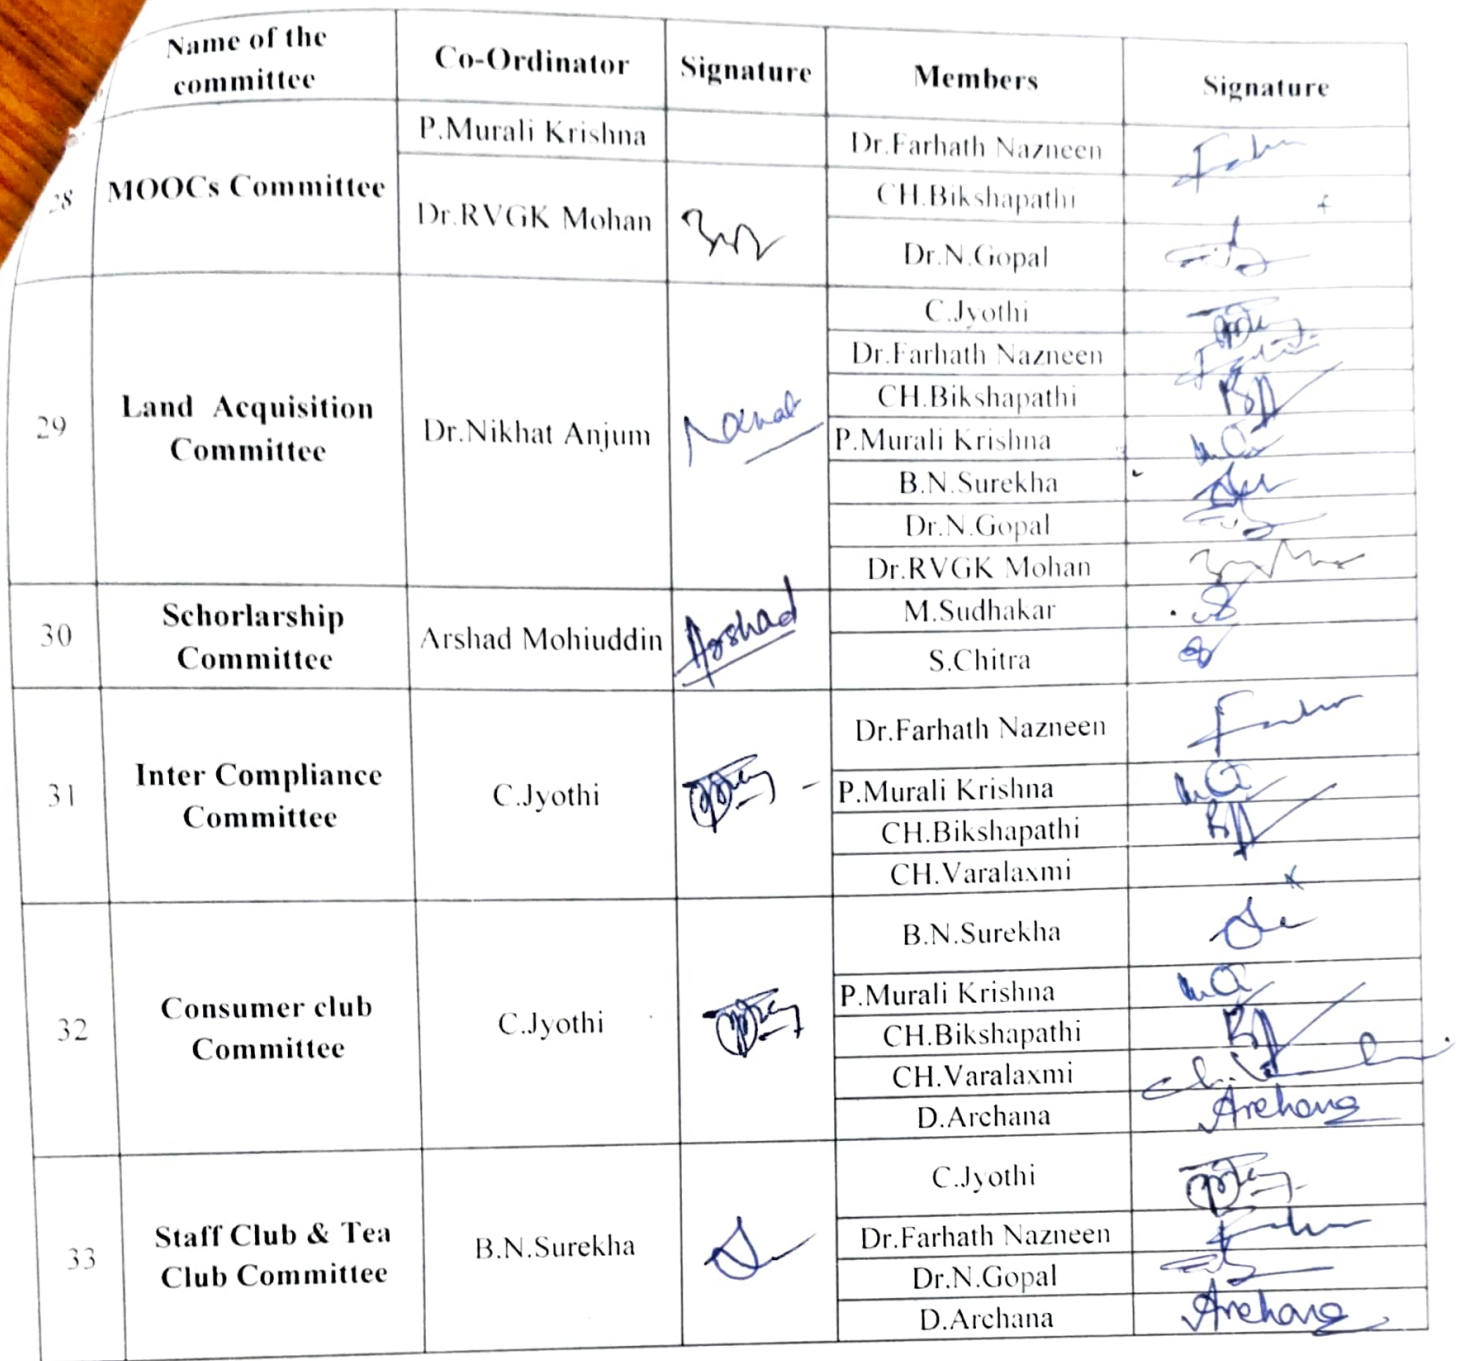 Name of the committee Co-Ordinator Signature Members Signature
28 MOOCs Committee P.Murali Krishna Dr.Farhath Nazneen
CH.Bikshapathi
Dr.RVGK Mohan Dr.N.Gopal
29 Land Acquisition Committee Dr.Nikhat Anjum C.Jyothi
Dr.Farhath Nazneen
CH.Bikshapathi
P.Murali Krishna
B.N.Surekha
Dr.N.Gopal
Dr.RVGK Mohan
30 Schorlarship Committee Arshad Mohiuddin Arshad M.Sudhakar
S.Chitra
31 Inter Compliance Committee C.Jyothi Dr.Farhath Nazneen
P.Murali Krishna
CH.Bikshapathi
CH.Varalaxmi
32 Consumer club Committee C.Jyothi B.N.Surekha
P.Murali Krishna
CH.Bikshapathi
CH.Varalaxmi
D.Archana Archana
33 Staff Club & Tea Club Committee B.N.Surekha C.Jyothi
Dr.Farhath Nazneen
Dr.N.Gopal
D.Archana Archana